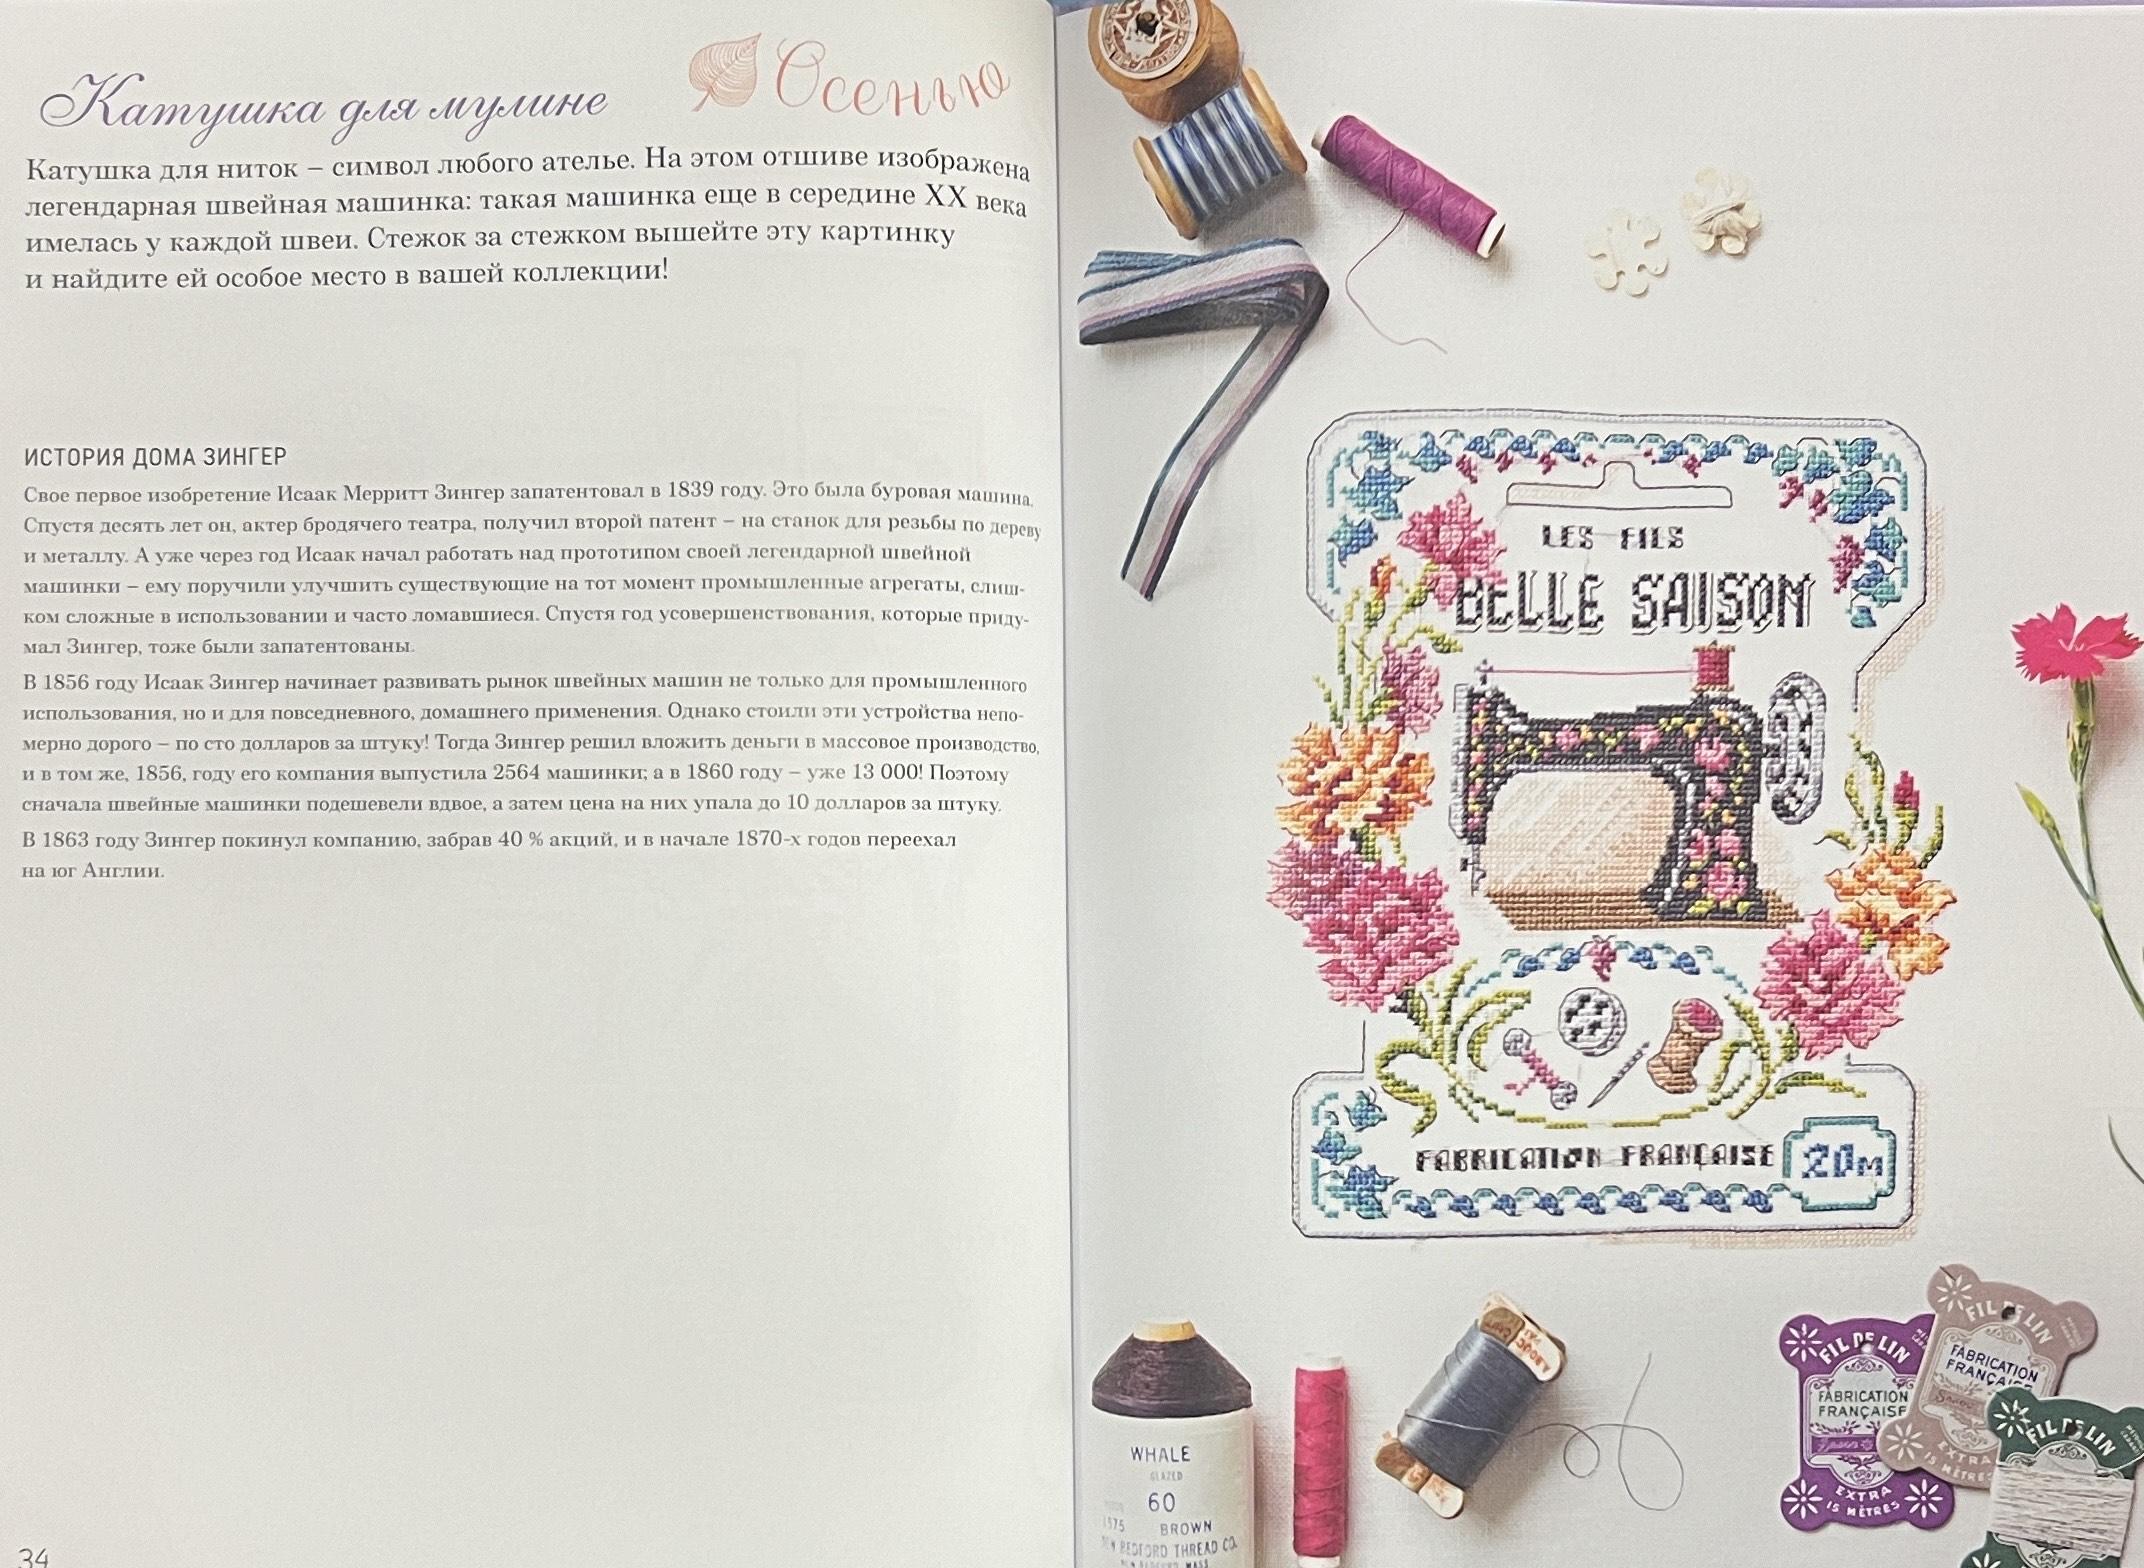 Катушка для мулине
Осенью
Катушка для ниток – символ любого ателье. На этом отшиве изображена
легендарная швейная машинка: такая машинка еще в середине XX века
имелась у каждой швеи. Стежок за стежком вышейте эту картинку
и найдите ей особое место в вашей коллекции!
ИСТОРИЯ ДОМА ЗИНГЕР
Свое первое изобретение Исаак Мерритт Зингер запатентовал в 1839 году. Это была буровая машина.
Спустя десять лет он, актер бродячего театра, получил второй патент – на станок для резьбы по дереву
и металлу. А уже через год Исаак начал работать над прототипом своей легендарной швейной
машинки – ему поручили улучшить существующие на тот момент промышленные агрегаты, слиш-
ком сложные в использовании и часто ломавшиеся. Спустя год усовершенствования, которые приду-
мал Зингер, тоже были запатентованы.
В 1856 году Исаак Зингер начинает развивать рынок швейных машин не только для промышленного
использования, но и для повседневного, домашнего применения. Однако стоили эти устройства непо-
мерно дорого – по сто долларов за штуку! Тогда Зингер решил вложить деньги в массовое производство,
и в том же, 1856, году его компания выпустила 2564 машинки; а в 1860 году – уже 13 000! Поэтому
сначала швейные машинки подешевели вдвое, а затем цена на них упала до 10 долларов за штуку.
В 1863 году Зингер покинул компанию, забрав 40 % акций, и в начале 1870-х годов переехал
на юг Англии.
34
LES FILS
BELLE SAISON
FABRICATION FRANÇAISE
20M
WHALE
GLAZED
60
BROWN
BEDFORD THREAD CO.
FIL DE LIN
FABRICATION
FRANÇAISE
EXTRA
15 MÈTRES
FIL DE LIN
FABRICATION
FRANÇAISE
EXTRA
15 MÈTRES
FIL DE LIN